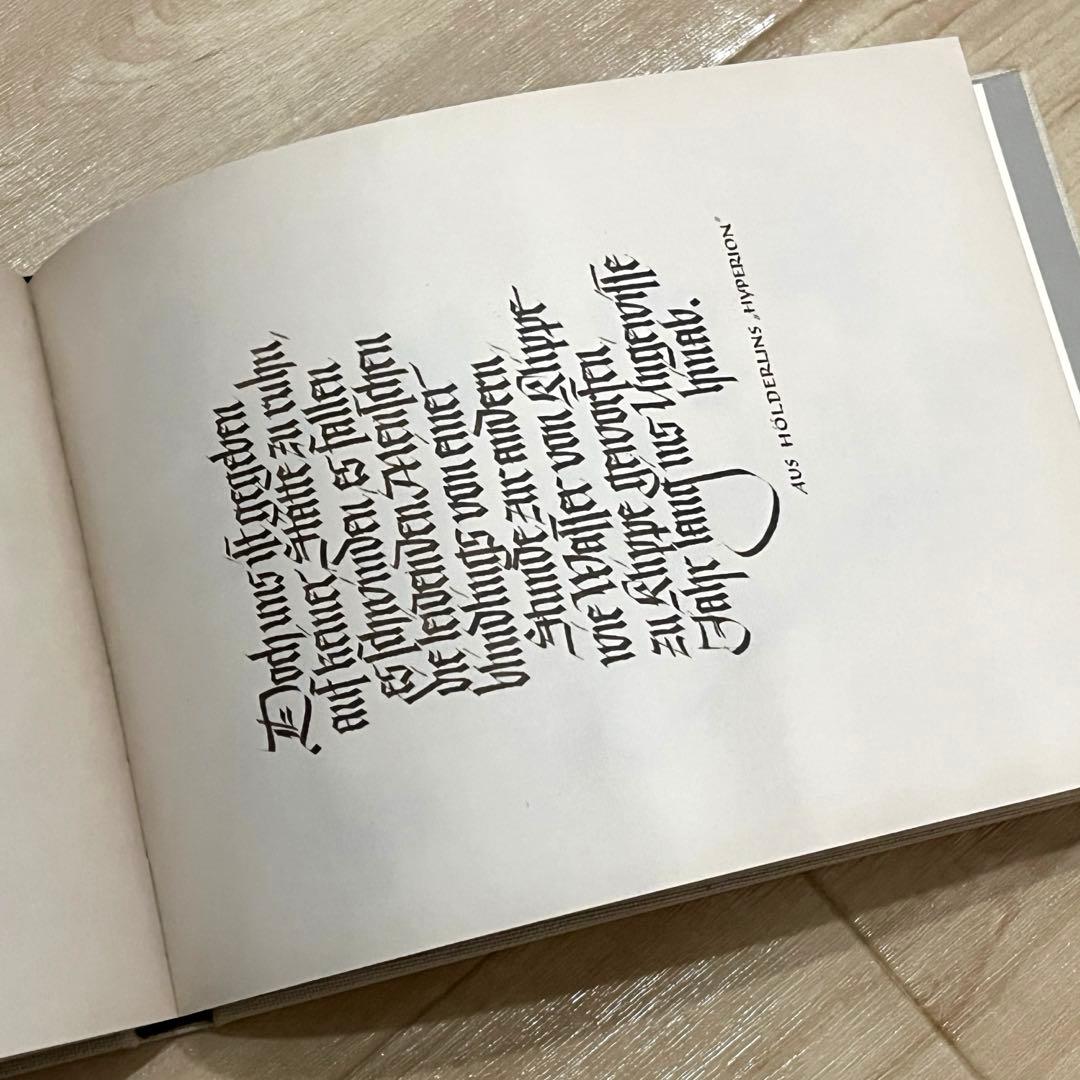 Doch uns ist gegeben
auf keiner Stätte zu ruhn,
es schwinden es fallen
die leidenden Menschen
blindlings von einer
Stunde zur andern
wie Wasser von Klippe
zu Klippe geworfen,
Jahr lang ins Ungewisse
hinab.
AUS HÖLDERLINS „HYPERION“